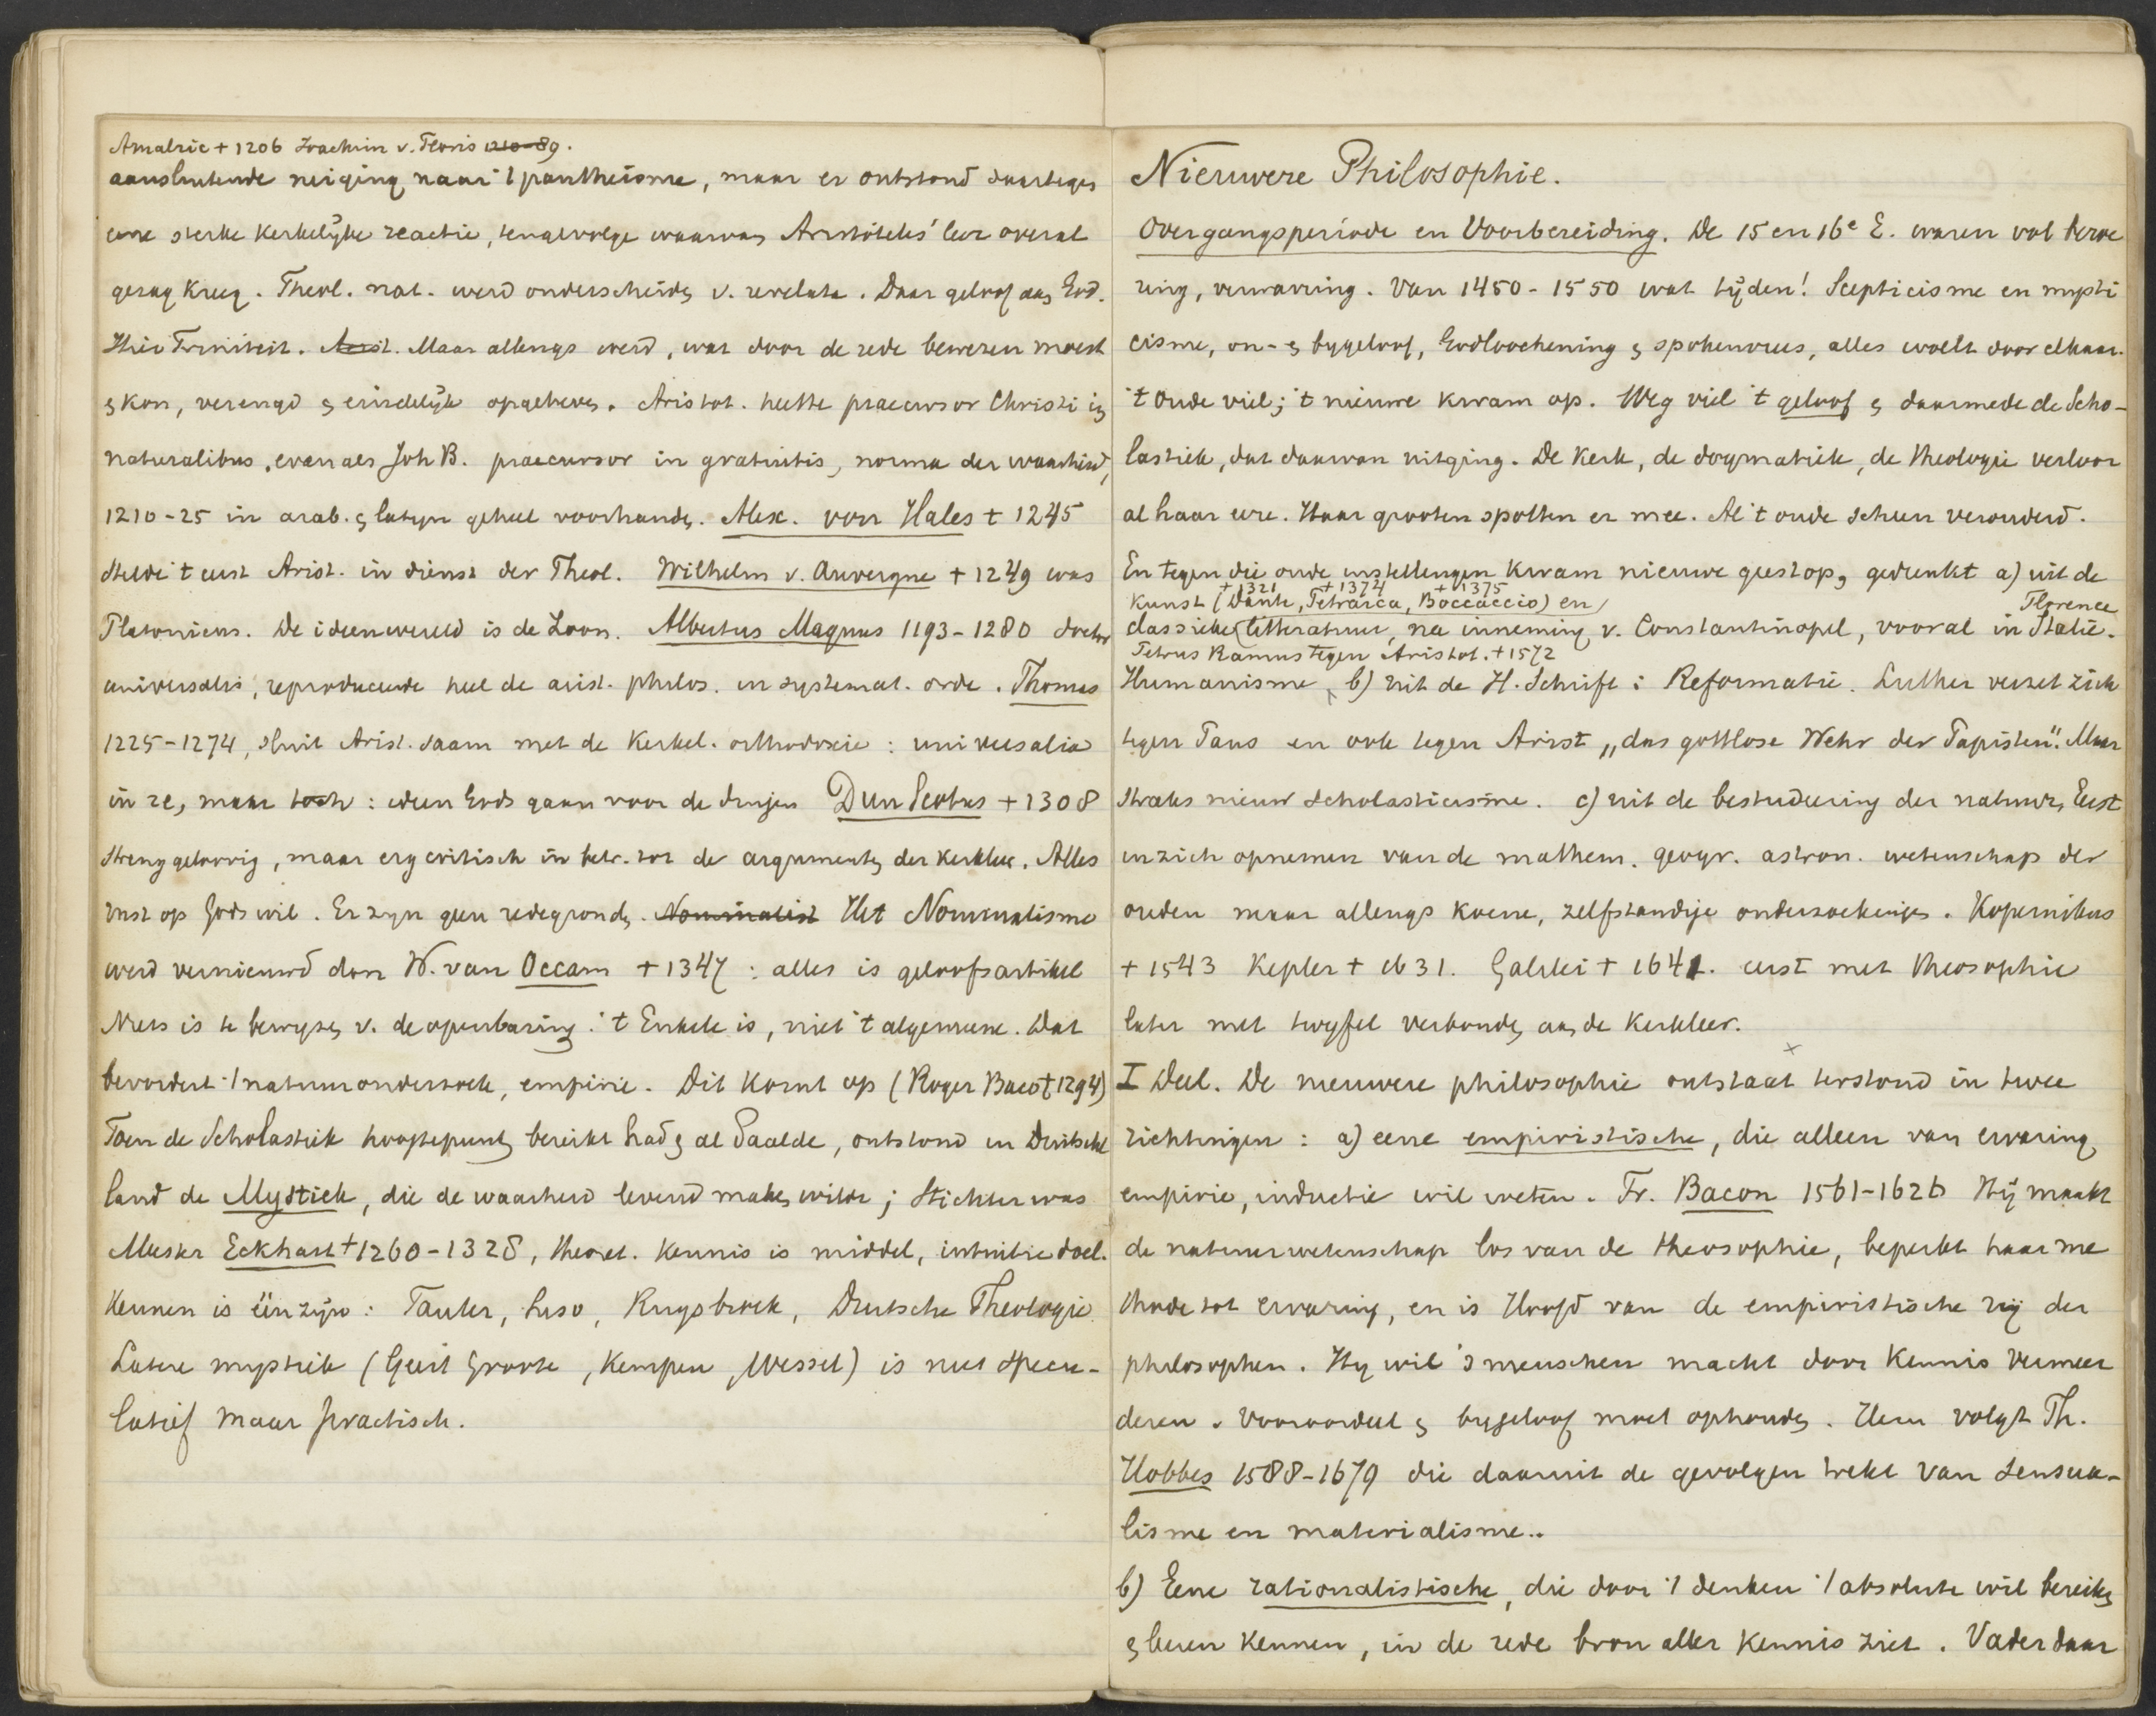 Amalric + 1206 Joachim v. Floris 1210-89.
aansluitende neiging naar 't pantheisme, maar er ontstond daartegen
eene sterke kerkelijke reactie, tengevolge waarvan Aristoteles' leer overal
gezag kreeg. Theol. nat. werd onderscheiden v. revelata. Daar geloof aan God.
Hier Triniteit. Arist. Maar allengs werd, wat door de rede bewezen moest
en kon, verengd en eindelijk opgeheven. Aristot. heette praecursor Christi in
naturalibus, evenals Joh B. praecursor in gratuitis, norma der waarheid,
1210-25 in arab. en latyn geheel voorhanden. Alex. von Hales + 1245
stelde 't eerst Arist. in dienst der Theol. Wilhelm v. Auvergne + 1249 was
Platonicus. De ideenwereld is de Zoon. Albertus Magnus 1193-1280 doctor
universalis, reproduceerde heel de arist. philos. in systemat. orde. Thomas
1225-1274, sluit Arist. saam met de Kerkel. orthodoxie: universalia
in re, maar toch: ideen Gods gaan voor de dingen Dun Scotus + 1308
streng geloovig, maar erg critisch in betr. tot de argumenten der kerkleer. Alles
rust op Gods wil. Er zyn geen redegronden. Nominalist Het Nominalisme
werd vernieuwd don W. van Occam + 1347: alles is geloofsartikel
Niets is te bewyzen v. de openbaring. 't Enkele is, niet 't algemeene. Dat
bevordert 't natuuronderzoek, empirie. Dit komt op (Roger Baco + 1294)
Toen de Scholastiek hoogtepunt bereikt had en al daalde, ontstond in Duitsch
land de Mystiek, die de waarheid levend maken wilde; Stichter was
Meister Eckhart + 1260-1328, theoret. kennis is middel, intuitie doel.
Kennen is één zijn: Tauler, Suso, Ruysbroek, Deutsche Theologie.
Latere mystiek (Geert Groote, Kempen, Wessel) is niet specu-
latief maar practisch.
Nieuwere Philosophie.
Overgangsperiode en Voorbereiding. De 15 en 16e E. waren vol beroe
ring, verwarring. Van 1450-1550 wat tijden! Scepticisme en mysti
cisme, on- en bygeloof, Godloochening en spokenvrees, alles woelt door elkaar.
't Oude viel; 't nieuwe kwam op. Weg viel 't geloof en daarmede de Scho-
lastiek, dat daarvan uitging. De Kerk, de dogmatiek, de theologie verloor
al haar eere. Haar grooten spotten er mee. Al 't oude scheen verouderd.
En tegen die oude instellingen kwam nieuwe geest op, gedrenkt a) uit de
+ 1321 + 1374 + 1375
Kunst (Dante, Petrarca, Boccaccio) en
Florence
classieke litteratuur, na inneming v. Constantinopel, vooral in Italie.
Petrus Ramus tegen Aristot. + 1572
Humanisme, b) uit de H. Schrift: Reformatie. Luther verzet zich
tegen Paus en ook tegen Arist „das gottlose Wehr der Papisten". Maar
straks nieuw scholasticisme. c) uit de bestudeering der natuur, Eerst
in zich opnemen van de mathem. geogr. astron. wetenschap der
ouden maar allengs koene, zelfstandige onderzoekingen. Kopernikus
+ 1543 Kepler + 1631. Galilei + 1641. eerst met theosophie
later met twyfel verbonden aan de Kerkleer.
I Deel. De nieuwere philosophie ontstaat terstond in twee
richtingen: a) eene empiristische, die alleen van ervaring
empirie, inductie wil weten. Fr. Bacon 1561-1626 Hij maakt
de natuurwetenschap los van de theosophie, beperkt haar me
thode tot ervaring, en is Hoofd van de empiristische rij der
philosophen. Hy wil 's menschen macht door Kennis vermeer
deren. Vooroordeel en bygeloof moet ophouden. Hem volgt Th.
Hobbes 1588-1679 die daaruit de gevolgen trekt van sensua-
lisme en materialisme..
b) Eene rationalistische, die door 't denken 't absolute wil bereiken
en leeren kennen, in de rede bron aller kennis ziet. Vader daar